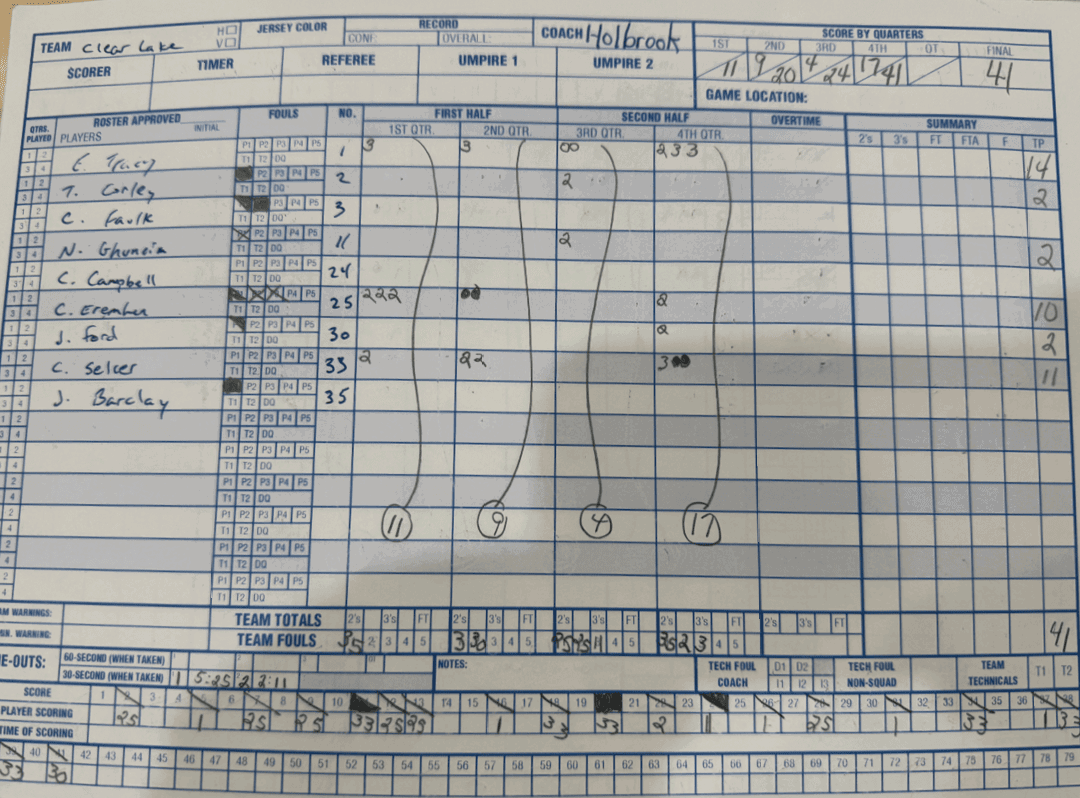 TEAM Clear Lake H V JERSEY COLOR RECORD CONF: OVERALL: COACH Holbrook SCORE BY QUARTERS
1ST 2ND 3RD 4TH OT FINAL
11 9 20 4 24 17 41 41
SCORER TIMER REFEREE UMPIRE 1 UMPIRE 2
GAME LOCATION:
QTRS. PLAYED ROSTER APPROVED INITIAL PLAYERS FOULS NO. FIRST HALF SECOND HALF OVERTIME SUMMARY
1ST QTR. 2ND QTR. 3RD QTR. 4TH QTR. 2's 3's FT FTA F TP
1 2 3 4 E. Tracy P1 P2 P3 P4 P5 T1 T2 DQ 1 3 3 00 2 3 3 14
1 2 3 4 T. Corley P2 P3 P4 P5 T1 T2 DQ 2 2 2
1 2 3 4 C. Faulk P3 P4 P5 T1 T2 DQ 3
1 2 3 4 N. P2 P3 P4 P5 T1 T2 DQ 11 2 2
1 2 3 4 C. Campbell P1 P2 P3 P4 P5 T1 T2 DQ 24
1 2 3 4 C. P4 P5 T1 T2 DQ 25 2 2 2 2 10
1 2 3 4 J. Ford P2 P3 P4 P5 T1 T2 DQ 30 2 2
1 2 3 4 C. Selcer P1 P2 P3 P4 P5 T1 T2 DQ 33 2 2 2 3 11
1 2 3 4 J. Barclay P2 P3 P4 P5 T1 T2 DQ 35
1 2 3 4 P1 P2 P3 P4 P5 T1 T2 DQ
1 2 4 P1 P2 P3 P4 P5 T1 T2 DQ
2 4 P1 P2 P3 P4 P5 T1 T2 DQ
2 4 P1 P2 P3 P4 P5 T1 T2 DQ 11 9 4 17
2 4 P1 P2 P3 P4 P5 T1 T2 DQ
2 4 P1 P2 P3 P4 P5 T1 T2 DQ
WARNINGS: TEAM TOTALS 2's 3's FT 2's 3's FT 2's 3's FT 2's 3's FT 2's 3's FT
WARNING: TEAM FOULS 35 2 3 4 5 3 30 3 4 5 11 4 5 35 2 3 4 5 41
E-OUTS: 60-SECOND (WHEN TAKEN) NOTES: TECH FOUL COACH D1 D2 I1 I2 I3 TECH FOUL NON-SQUAD TEAM TECHNICALS T1 T2
30-SECOND (WHEN TAKEN) 1 5:25 2 2:11
SCORE 1 2 3 4 5 6 7 8 9 10 12 13 14 15 16 17 18 19 21 22 23 25 26 27 28 29 30 31 32 33 34 35 36 37 38
PLAYER SCORING 25 1 25 25 33 25 1 33 33 2 11 1 25 1 33 1 33
TIME OF SCORING
39 40 41 42 43 44 45 46 47 48 49 50 51 52 53 54 55 56 57 58 59 60 61 62 63 64 65 66 67 68 69 70 71 72 73 74 75 76 77 78 79
33 30